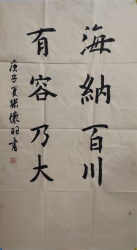 海納百川
有容乃大
庚子夏
書